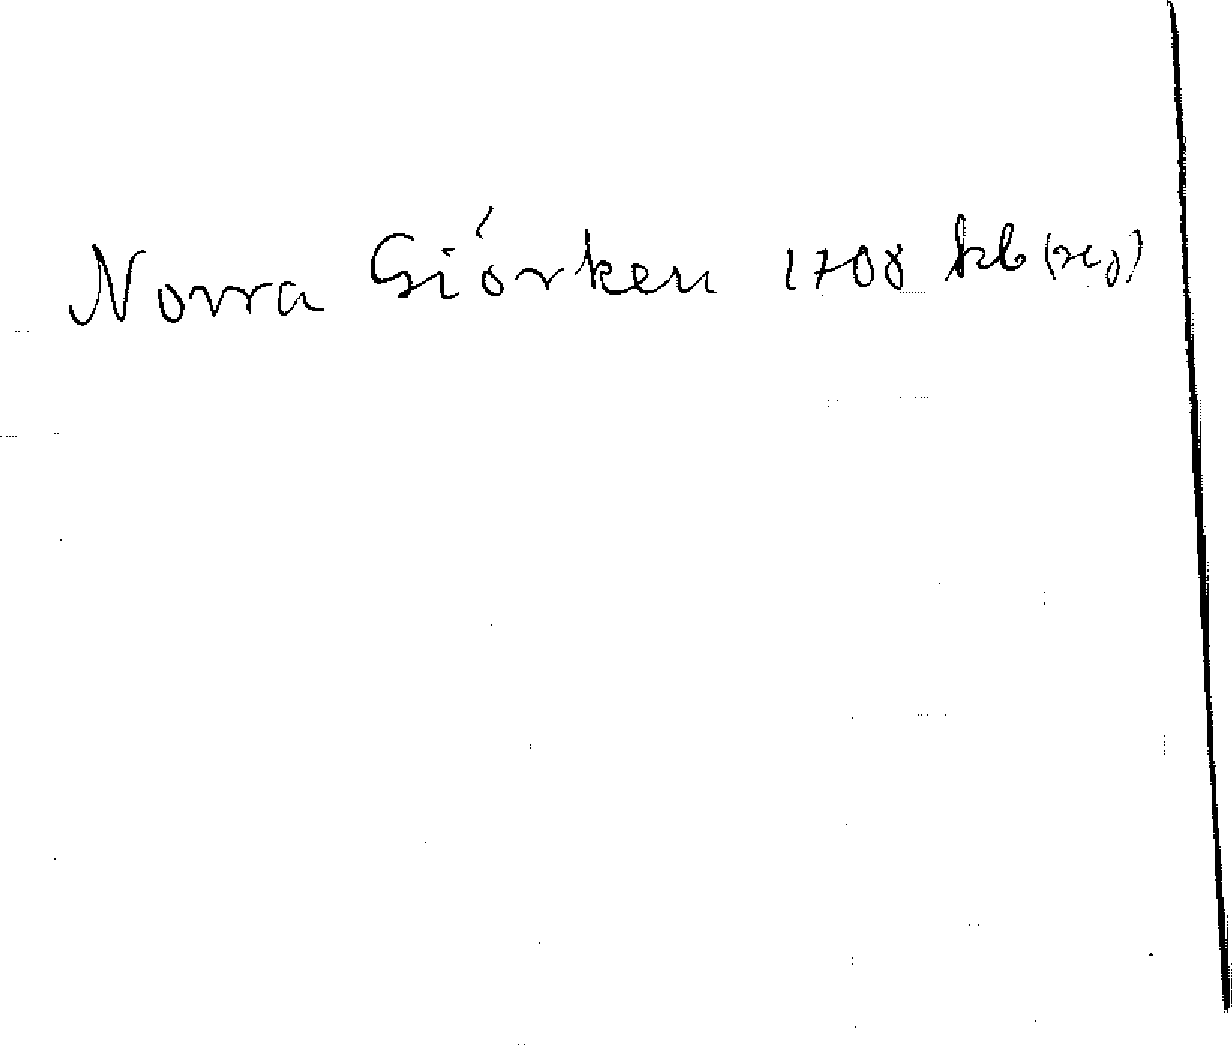 Norra Giórken 1708 kb (reg)